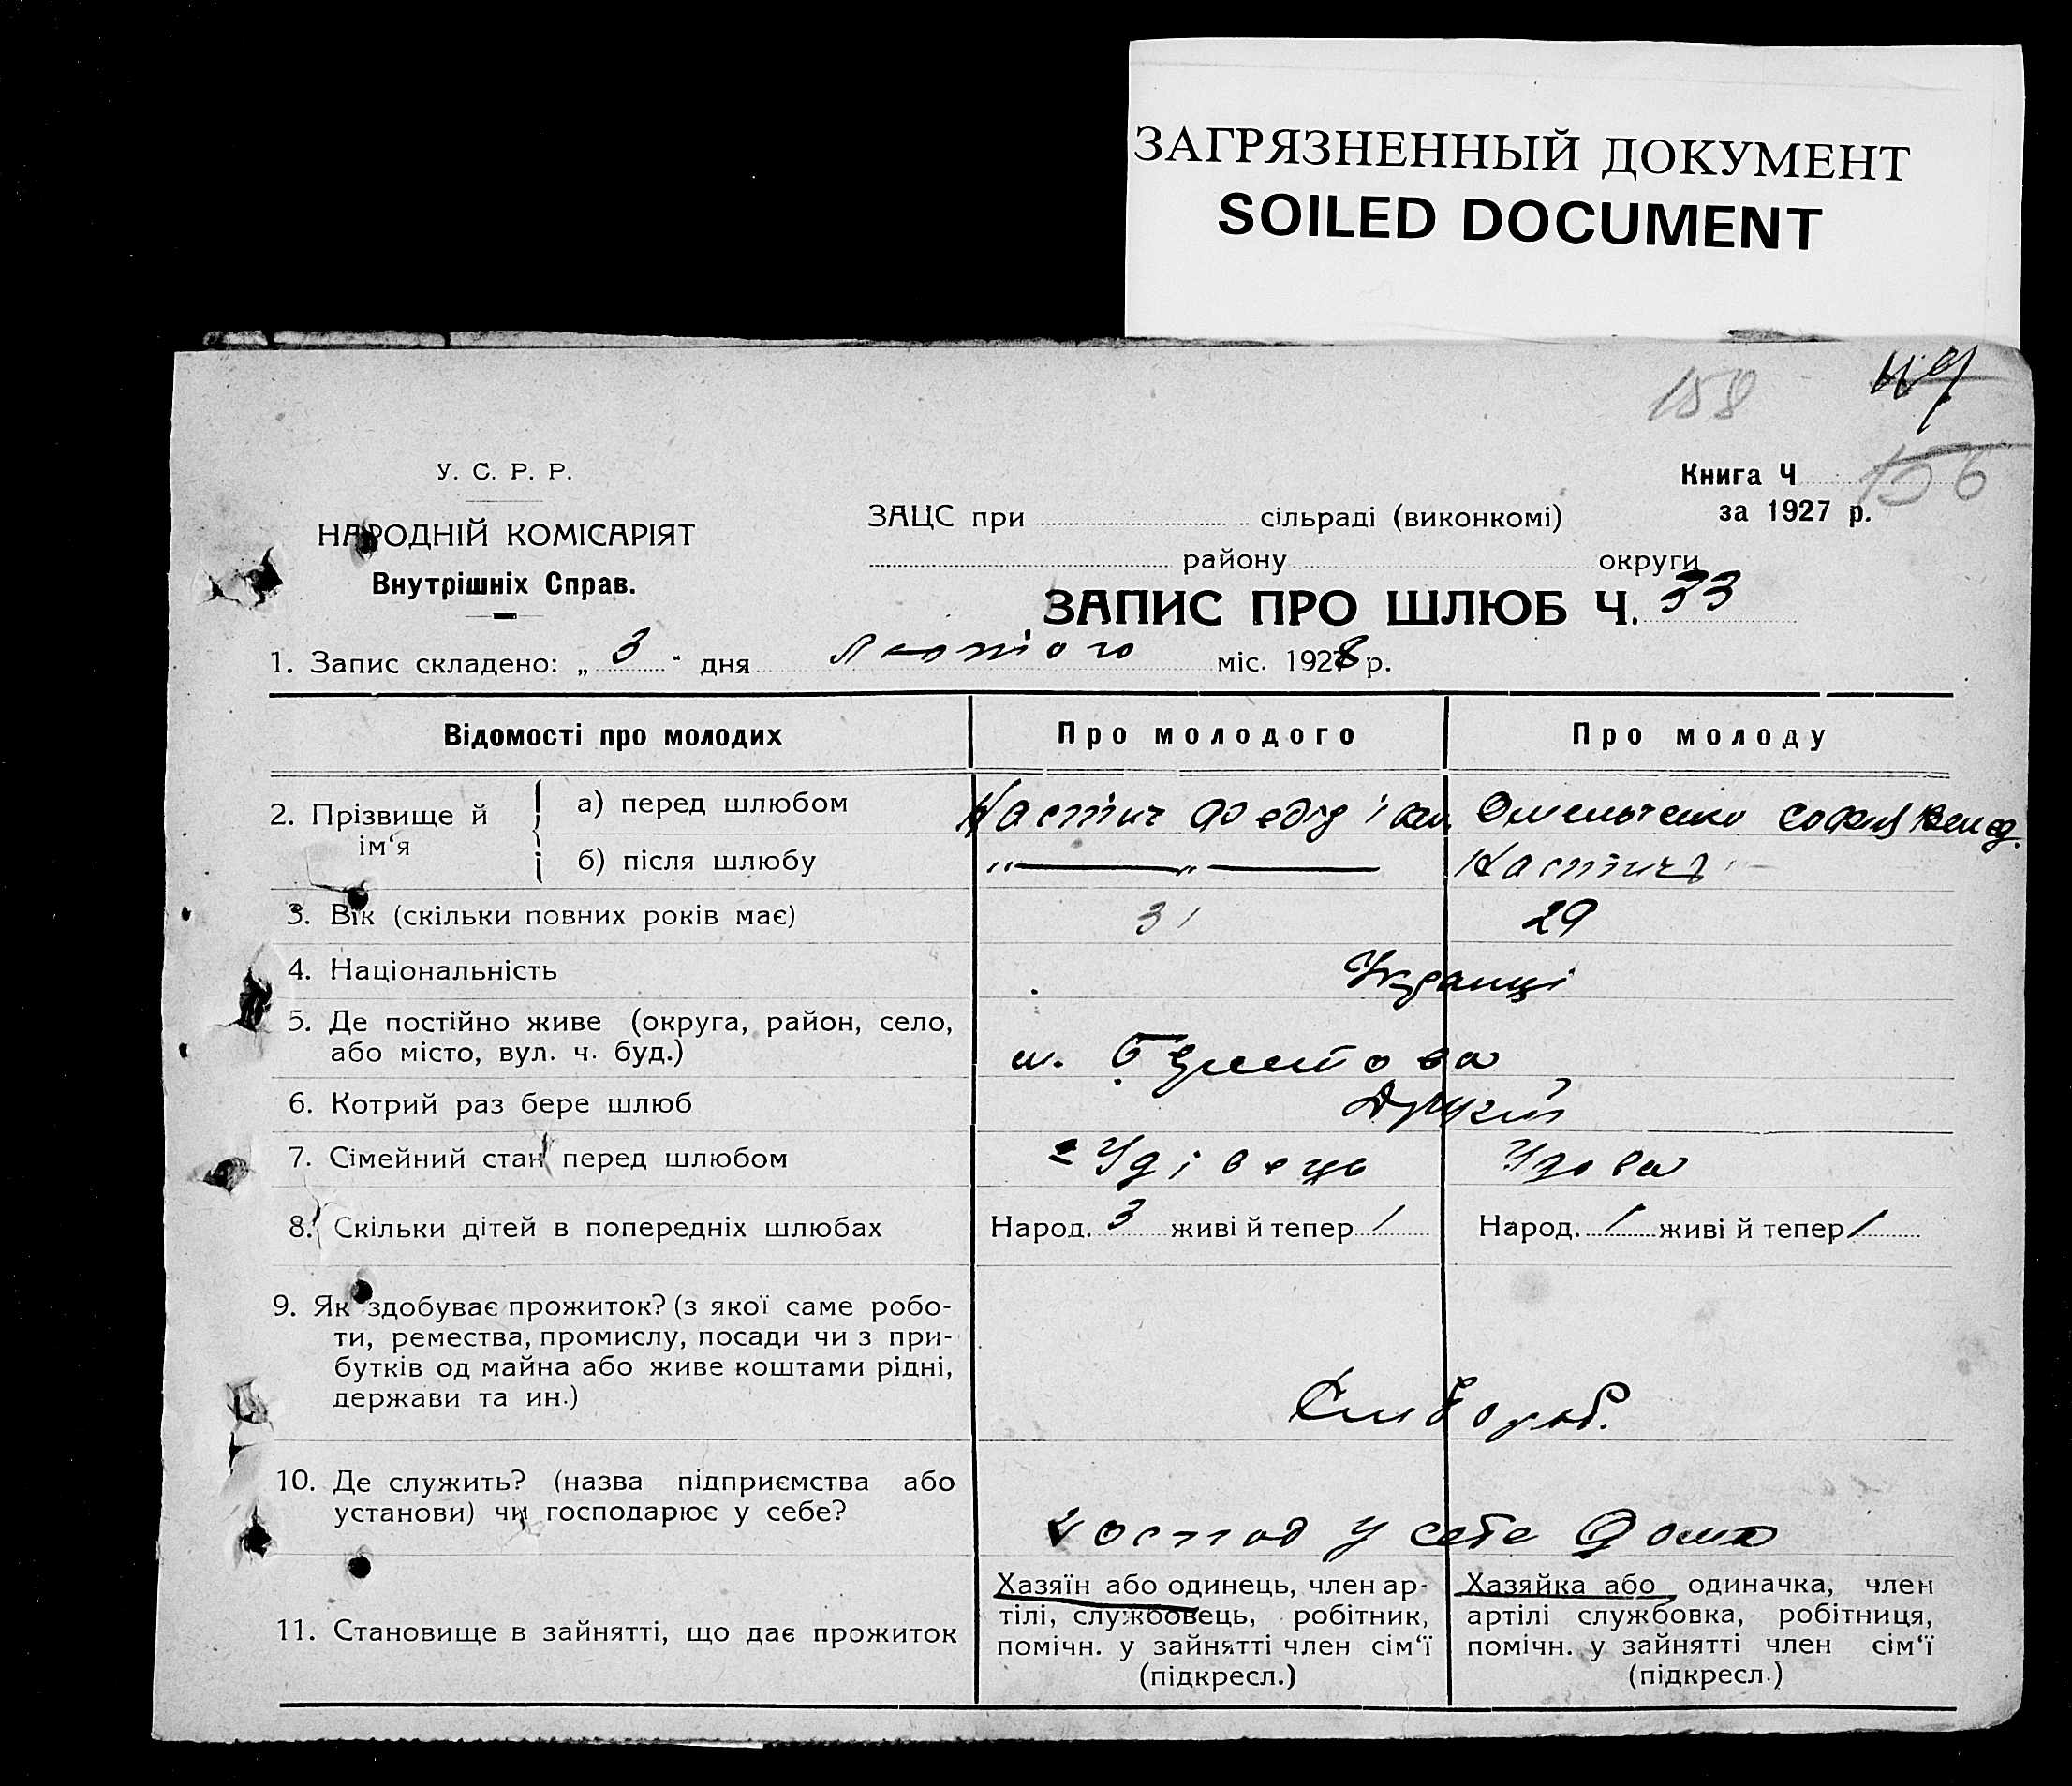 ЗАГРЯЗНЕННЫЙ ДОКУМЕНТ
SOILED DOCUMENT
158
У. С. Р. Р.
НАРОДНІЙ КОМІСАРІЯТ
Внутрішніх Справ.
Книга Ч 156
за 1927 р.
ЗАЦС при сільраді (виконкомі)
району округи
ЗАПИС ПРО ШЛЮБ Ч. 33
1. Запис складено: „ 3 " дня Лютого міс. 1928 р.
Відомості про молодих Про молодого Про молоду
2. Прізвище й ім‘я
а) перед шлюбом Костич Федір Омельченко Софія
б) після шлюбу „ — „ — Костич
3. Вік (скільки повних років має) 31 29
4. Національність Українці
5. Де постійно живе (округа, район, село,
або місто, вул. ч. буд.) м.
6. Котрий раз бере шлюб Другий
7. Сімейний стан перед шлюбом Удівець Удова
8. Скільки дітей в попередніх шлюбах Народ. 3 живі й тепер 1 Народ. 1 живі й тепер 1
9. Як здобуває прожиток? (з якої саме робо-
ти, ремества, промислу, посади чи з при-
бутків од майна або живе коштами рідні,
держави та ин.) Хлібороб.
10. Де служить? (назва підприємства або
установи) чи господарює у себе? господ у себе дома
11. Становище в зайнятті, що дає прожиток
Хазяїн або одинець, член ар-
тілі, службовець, робітник,
помічн. у зайнятті член сім‘ї
(підкресл.)
Хазяйка або одиначка, член
артілі службовка, робітниця,
помічн. у зайнятті член сім‘ї
(підкресл.)